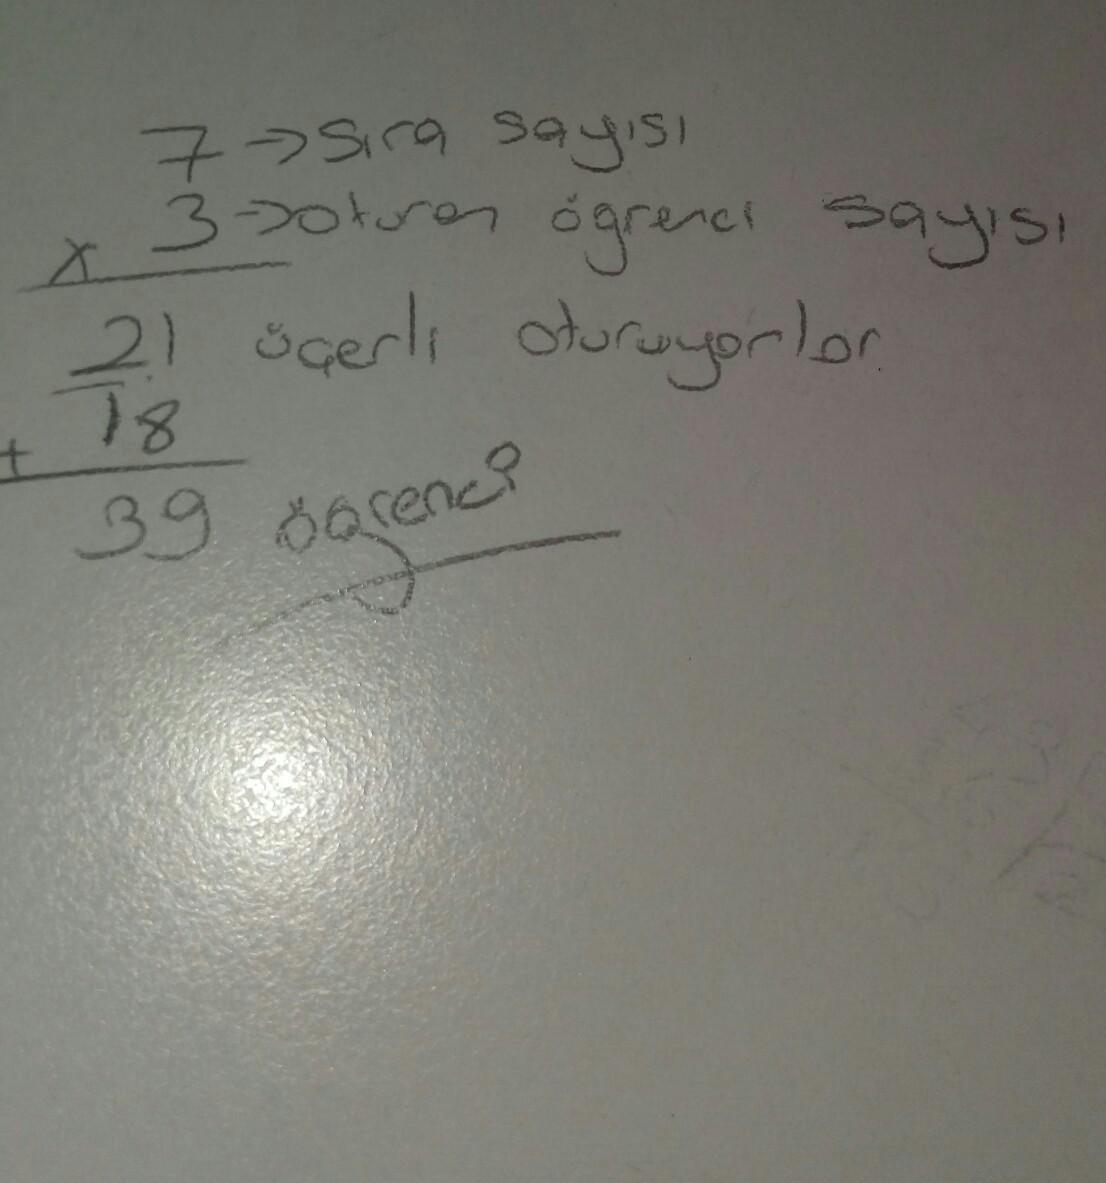 7 → sıra sayısı
x 3 → oturan öğrenci sayısı
21 üçerli oturuyorlar
+ 18
39 öğrenci